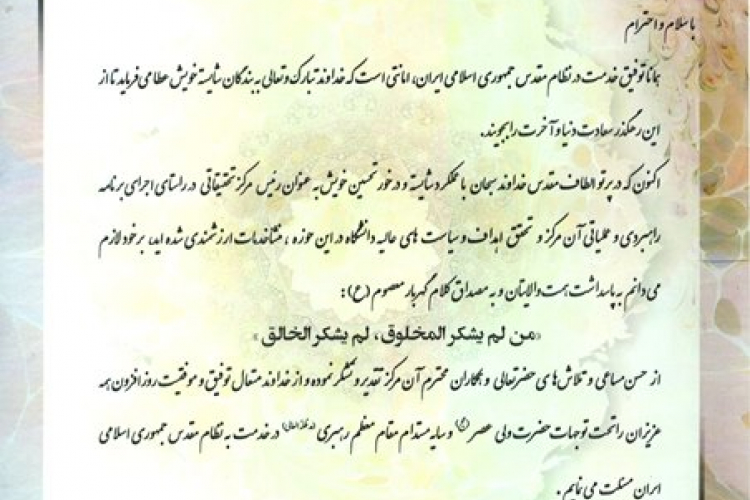 با سلام و احترام
همانا توفیق خدمت در نظام مقدس جمهوری اسلامی ایران، امانتی است که خداوند تبارک و تعالی به بندگان شایسته خویش عطا می فرماید تا از
این رهگذر سعادت دنیا و آخرت را بجویند.
اکنون که در پرتو الطاف مقدس خداوند سبحان با عملکرد شایسته و در خور تحسین خویش به عنوان رئیس مرکز تحقیقاتی در راستای اجرای برنامه
راهبردی و عملیاتی آن مرکز و تحقق اهداف و سیاست های عالیه دانشگاه در این حوزه ، منشأ خدمات ارزشمندی شده اید، بر خود لازم
می دانم به پاسداشت همت والایتان و به مصداق کلام گهربار معصوم (ع) :
«من لم یشکر المخلوق، لم یشکر الخالق»
از حسن مساعی و تلاش های حضرتعالی و همکاران محترم آن مرکز تقدیر و تشکر نموده و از خداوند متعال توفیق و موفقیت روز افزون همه
عزیزان را تحت توجهات حضرت ولی عصر (عج) و سایه مستدام مقام معظم رهبری (مدظله العالی) در خدمت به نظام مقدس جمهوری اسلامی
ایران مسئلت می نمایم .